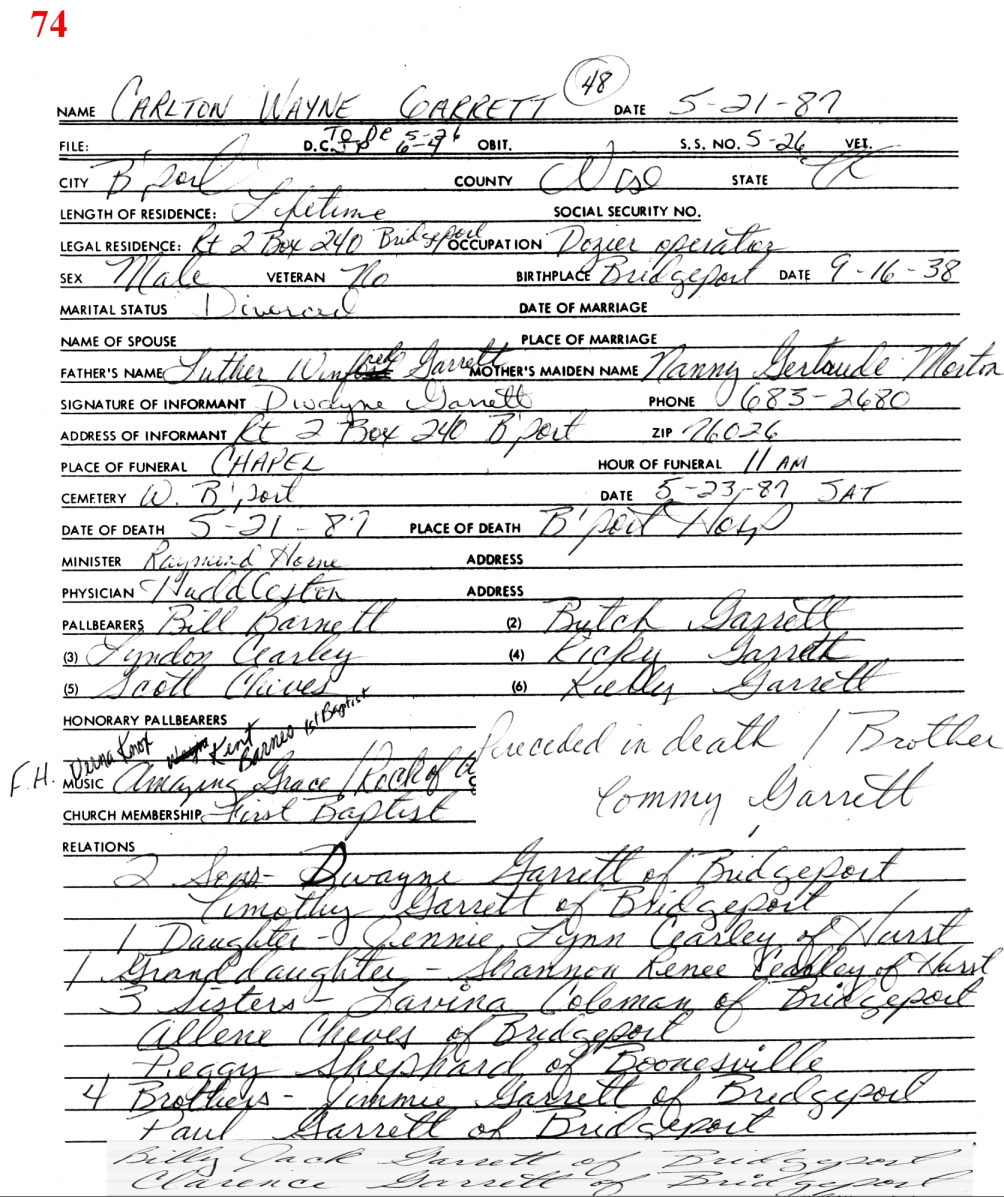 74
NAME CARLTON WAYNE GARRETT 48 DATE 5-21-87
FILE: D.C. TO DR 5-26 JP 6-4 OBIT. S.S. NO. 5-26 VET.
CITY B'port COUNTY Wise STATE TX
LENGTH OF RESIDENCE: Lifetime SOCIAL SECURITY NO.
LEGAL RESIDENCE: Rt 2 Box 240 Bridgeport OCCUPATION Dozier operator
SEX Male VETERAN No BIRTHPLACE Bridgeport DATE 9-16-38
MARITAL STATUS Divorced DATE OF MARRIAGE
NAME OF SPOUSE PLACE OF MARRIAGE
FATHER'S NAME Luther Winfred Garrett MOTHER'S MAIDEN NAME Nanny Gertaude Morton
SIGNATURE OF INFORMANT Dwayne Garrett PHONE 683-2680
ADDRESS OF INFORMANT Rt 2 Box 240 B'port ZIP 76026
PLACE OF FUNERAL CHAPEL HOUR OF FUNERAL 11 AM
CEMETERY W. B'port DATE 5-23-87 SAT
DATE OF DEATH 5-21-87 PLACE OF DEATH B'port Hosp
MINISTER Raymond Horne ADDRESS
PHYSICIAN Huddleston ADDRESS
PALLBEARERS Bill Barnett (2) Butch Garrett
(3) Lyndon Cearley (4) Ricky Garrett
(5) Scott Cheves (6) Kielly Garrett
HONORARY PALLBEARERS
Verna Knox Wayne Kent Barnes 1st Baptist
Preceded in death 1 Brother
F.H. MUSIC Amazing Grace / Rock of
Tommy Garrett
CHURCH MEMBERSHIP First Baptist
RELATIONS
2 Sons - Dwayne Garrett of Bridgeport
Timothy Garrett of Bridgeport
1 Daughter - Jennie Lynn Cearley of Hurst
1 Granddaughter - Shannon Renee Cearley of Hurst
3 Sisters - Lavina Coleman of Bridgeport
Allene Cheves of Bridgeport
Peggy Shephard of Boonesville
4 Brothers - Jimmie Garrett of Bridgeport
Paul Garrett of Bridgeport
Billy Jack Garrett of Bridgeport
Clarence Garrett of Bridgeport